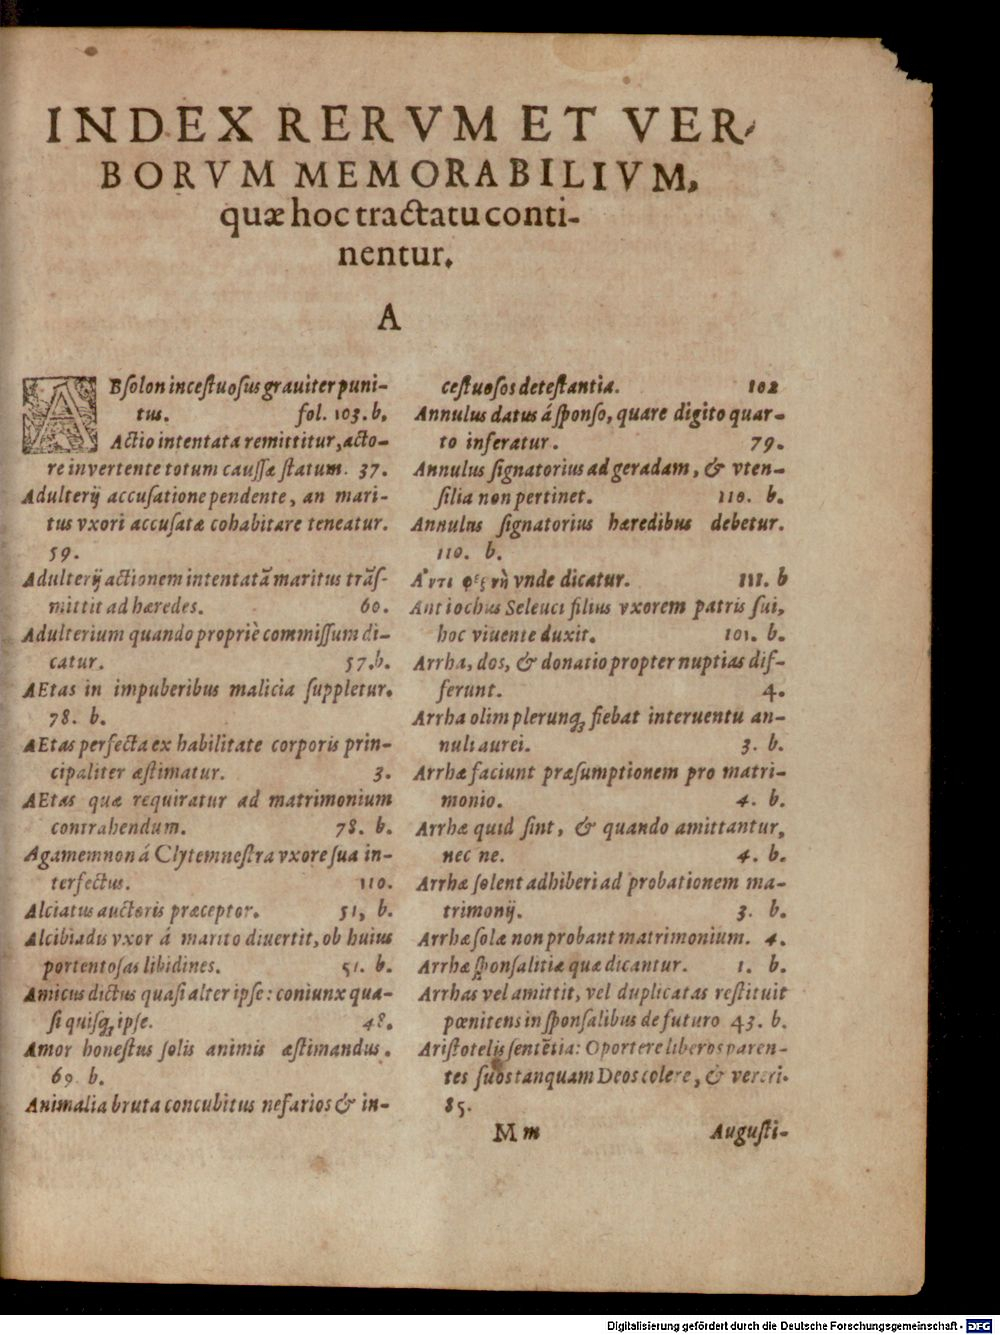 INDEX RERVM ET VER-
BORVM MEMORABILIVM,
quæ hoc tractatu conti-
nentur.
A
ABſolon inceſtuoſus grauiter puni-
tus. fol. 103. b.
Actio intentata remittitur, acto-
re invertente totum cauſſæ ſtatum. 37.
Adulterij accuſatione pendente, an mari-
tus vxori accuſatæ cohabitare teneatur.
59.
Adulterij actionem intentatã maritus trãſ-
mittit ad hæredes. 60.
Adulterium quando propriè commiſſum di-
catur. 57. b.
AEtas in impuberibus malicia ſuppletur.
78. b.
AEtas perfecta ex habilitate corporis prin-
cipaliter æſtimatur. 3.
AEtas quæ requiratur ad matrimonium
contrahendum. 78. b.
Agamemnon á Clytemneſtra vxore ſua in-
terfectus. 110.
Alciatus auctoris præceptor. 51, b.
Alcibiadis vxor á marito diuertit, ob huius
portentoſas libidines. 51. b.
Amicus dictus quaſi alter ipſe: coniunx qua-
ſi quiſq; ipſe. 48.
Amor honeſtus ſolis animis æſtimandus.
69 b.
Animalia bruta concubitus nefarios & in-
ceſtuoſos deteſtantia. 102
Annulus datus á ſponſo, quare digito quar-
to inferatur. 79.
Annulus ſignatorius ad geradam, & vten-
ſilia non pertinet. 110. b.
Annulus ſignatorius hæredibus debetur.
110. b.
vnde dicatur. 111. b
Antiochus Seleuci filius vxorem patris ſui,
hoc viuente duxit. 101. b.
Arrha, dos, & donatio propter nuptias dif-
ferunt. 4.
Arrha olim plerunq; fiebat interuentu an-
nuli aurei. 3. b.
Arrhæ faciunt præſumptionem pro matri-
monio. 4. b.
Arrhæ quid ſint, & quando amittantur,
nec ne. 4. b.
Arrhæ ſolent adhiberi ad probationem ma-
trimonij. 3. b.
Arrhæ ſolæ non probant matrimonium. 4.
Arrhæ ſponſalitiæ quæ dicantur. 1. b.
Arrhas vel amittit, vel duplicatas reſtituit
pœnitens in ſponſalibus de futuro 43. b.
Ariſtotelis ſentẽtia: Oportere liberos paren-
tes ſuos tanquam Deos colere, & vereri.
85.
M m Auguſti-
Digitalisierung gefördert durch die Deutsche Forschungsgemeinschaft - DFG